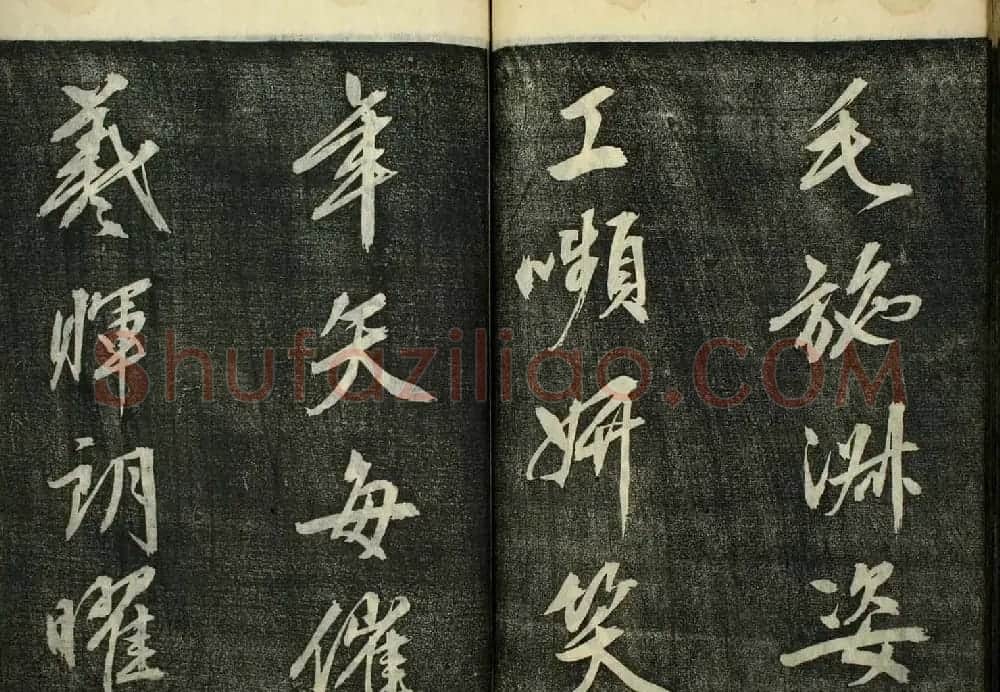 毛施淑姿
工嚬妍笑
年矢每催
羲暉朗曜
Shufaziliao.COM